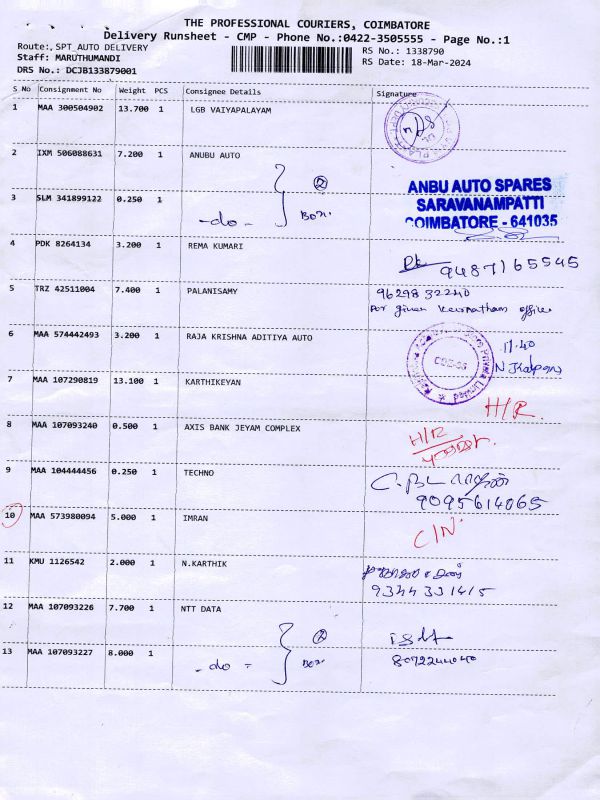 THE PROFESSIONAL COURIERS, COIMBATORE
Delivery Runsheet - CMP - Phone No.:0422-3505555 - Page No.:1
Route:, SPT_AUTO DELIVERY
Staff: MARUTHUMANDI
DRS No.: DCJB133879001
RS No.: 1338790
RS Date: 18-Mar-2024
S No Consignment No Weight PCS Consignee Details Signature
1 MAA 300504902 13.700 1 LGB VAIYAPALAYAM
2 IXM 506088631 7.200 1 ANUBU AUTO
3 SLM 341899122 0.250 1 -do- 2 Box.
ANBU AUTO SPARES
SARAVANAMPATTI
COIMBATORE - 641035
4 PDK 8264134 3.200 1 REMA KUMARI 9487165545
5 TRZ 42511004 7.400 1 PALANISAMY 9629832240
For given Keeranatham office
6 MAA 574442493 3.200 1 RAJA KRISHNA ADITIYA AUTO 11.40
N Kalpana
7 MAA 107290819 13.100 1 KARTHIKEYAN H/R.
8 MAA 107093240 0.500 1 AXIS BANK JEYAM COMPLEX H/R
9 MAA 104444456 0.250 1 TECHNO
9095614065
10 MAA 573980094 5.000 1 IMRAN C/N.
11 KMU 1126542 2.000 1 N.KARTHIK
9344331415
12 MAA 107093226 7.700 1 NTT DATA
13 MAA 107093227 8.000 1 -do- 2 Box 8072244040